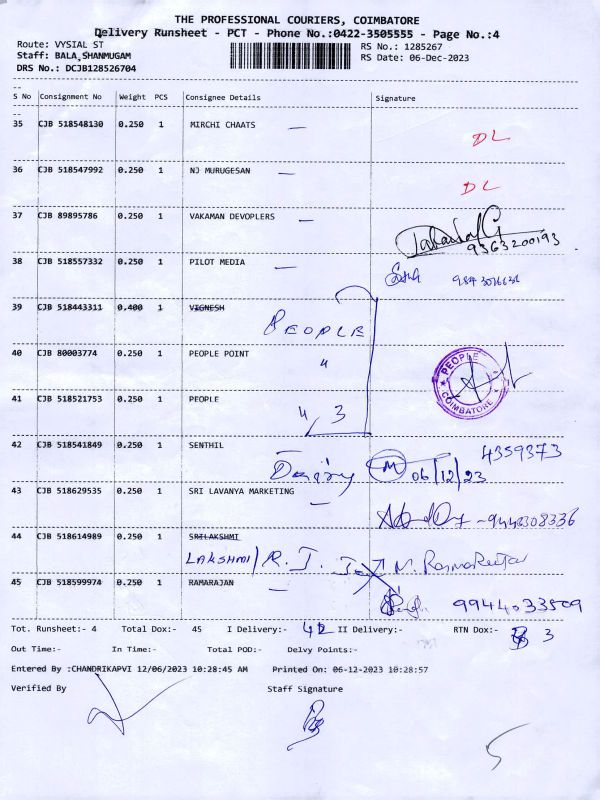 THE PROFESSIONAL COURIERS, COIMBATORE
Delivery Runsheet - PCT - Phone No.:0422-3505555 - Page No.:4
Route: VYSIAL ST
RS No.: 1285267
Staff: BALA,SHANMUGAM
RS Date: 06-Dec-2023
DRS No.: DCJB128526704
S No Consignment No Weight PCS Consignee Details Signature
35 CJB 518548130 0.250 1 MIRCHI CHAATS
DL
36 CJB 518547992 0.250 1 NJ MURUGESAN
DL
37 CJB 89895786 0.250 1 VAKAMAN DEVOPLERS
9363200193
38 CJB 518557332 0.250 1 PILOT MEDIA
39 CJB 518443311 0.400 1 VIGNESH
PEOPLE
40 CJB 80003774 0.250 1 PEOPLE POINT
"
PEOPLE
COIMBATORE
41 CJB 518521753 0.250 1 PEOPLE
" 3
42 CJB 518541849 0.250 1 SENTHIL
4359373
06/12/23
43 CJB 518629535 0.250 1 SRI LAVANYA MARKETING
44 CJB 518614989 0.250 1 SRILAKSHMI
LAKSHMI / R. J.
45 CJB 518599974 0.250 1 RAMARAJAN
9944033509
Tot. Runsheet:- 4 Total Dox:- 45 I Delivery:- 42 II Delivery:- RTN Dox:- 3
Out Time:- In Time:- Total POD:- Delvy Points:-
Entered By :CHANDRIKAPVI 12/06/2023 10:28:45 AM Printed On: 06-12-2023 10:28:57
Verified By Staff Signature